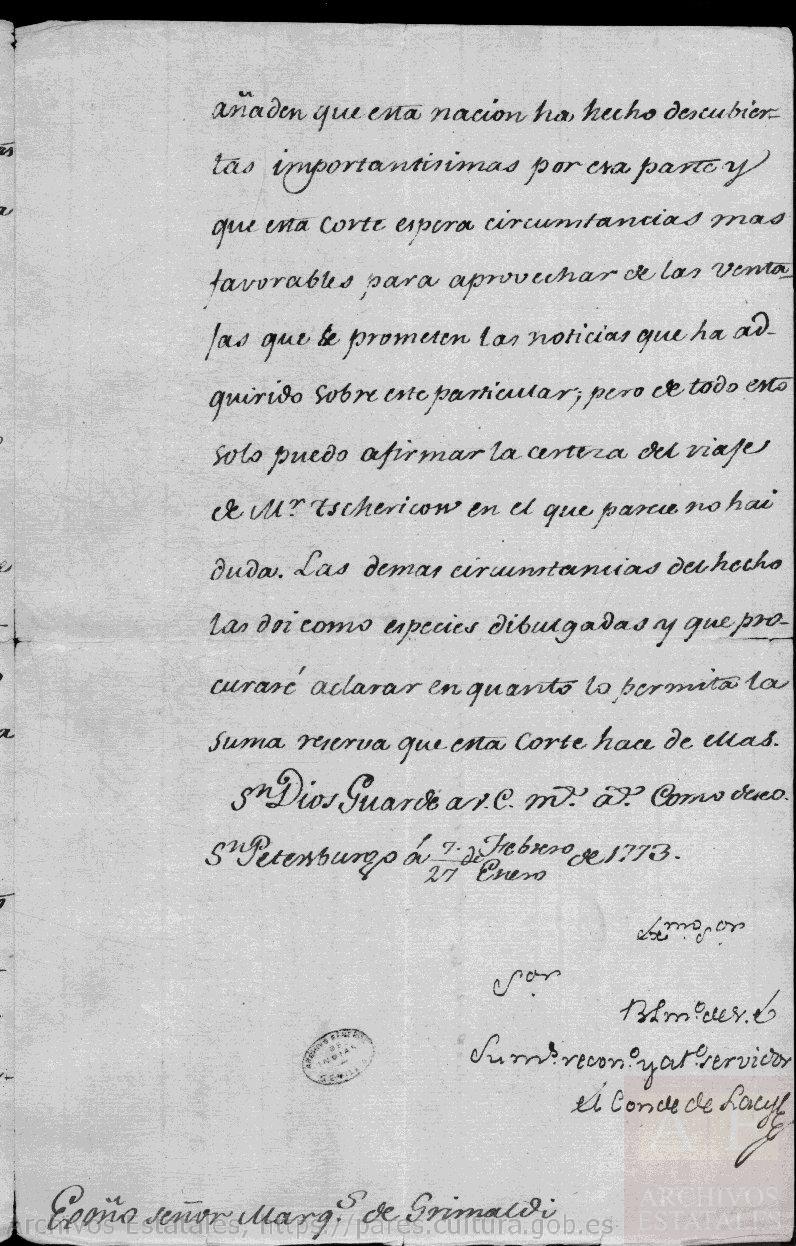 añaden que esta nacion ha hecho descubier=
tas importantisimas por esa parte y
que esta Corte espera circunstancias mas
favorables para aprovechar de las venta-
jas que se prometen las noticias que ha ad-
quirido sobre este particular; pero de todo esto
solo puedo afirmar la certeza del viaje
de Mr. Tschericow en el que parece no hai
duda. Las demas circunstancias del hecho
las doi como especies dibulgadas y que pro-
curaré aclarar en quanto lo permita la
suma reserva que esta Corte hace de ellas.
Dios Guarde a V.E. ms. as. Como deseo.
Sn Petersburgo á 7. de Febrero de 1773.
27 Enero
Exmo. Sor
Sor.
BLmo. de V.E
Su ms. recono. y ato. servidor
el Conde de Lacy
Exmo señor Marqs. de Grimaldi
ARCHIVO GENERAL
DE
INDIAS
SEVILLA
ARCHIVOS
ESTATALES
Archivos Estatales, https://pares.cultura.gob.es